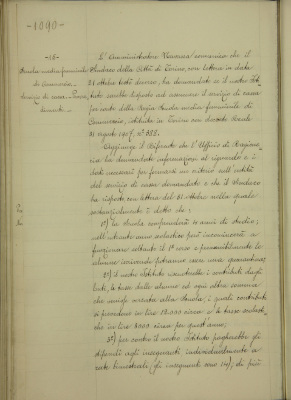 -1090-
-16-
Scuola media femminile
di Commercio -
Servizio di cassa -
L'Amministratore Veronesi comunica che il
Sindaco della Città di Torino, con lettera in data
21 ottobre testé decorso, ha domandato se il nostro Isti-
tuto sarebbe disposto ad assumere il servizio di cassa
per conto della Regia Scuola media femminile di
Commercio, istituita in Torino con decreto Reale
31 agosto 1907, N° 832.
Aggiunge il Riferente che l'Ufficio di Ragione-
ria ha domandato informazioni al riguardo e i
dati necessari per formarsi un criterio sull'entità
del servizio di cassa domandato e che il Sindaco
ha risposto con lettera del 31 ottobre nella quale
sostanzialmente è detto che:
1°) la Scuola comprenderà 4 anni di studio;
nell'entrante anno scolastico però incomincerà a
funzionare soltanto il 1° corso e presumibilmente le
alunne iscrivende potranno essere una quarantina;
2°) il nostro Istituto incasserebbe i contributi degli
Enti, le tasse delle alunne ed ogni altra somma
che venisse versata alla Scuola; i quali contributi
si prevedono in lire 12.000 circa e le tasse scolasti-
che in lire 3000 circa per quest'anno;
3°) per contro il nostro Istituto pagherebbe gli
stipendi agli insegnanti individualmente a
rate bimestrali (gli insegnanti sono 14); di più